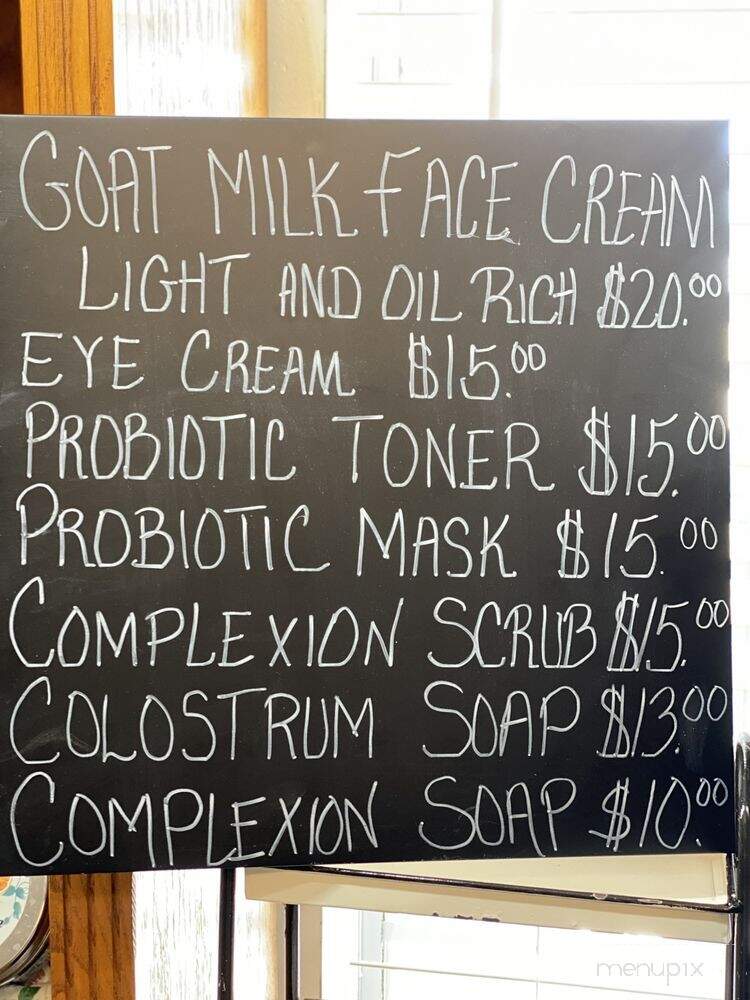 GOAT MILK FACE CREAM
LIGHT AND OIL RICH $20.00
EYE CREAM $15.00
PROBIOTIC TONER $15.00
PROBIOTIC MASK $15.00
COMPLEXION SCRUB $15.00
COLOSTRUM SOAP $13.00
COMPLEXION SOAP $10.00
menupix